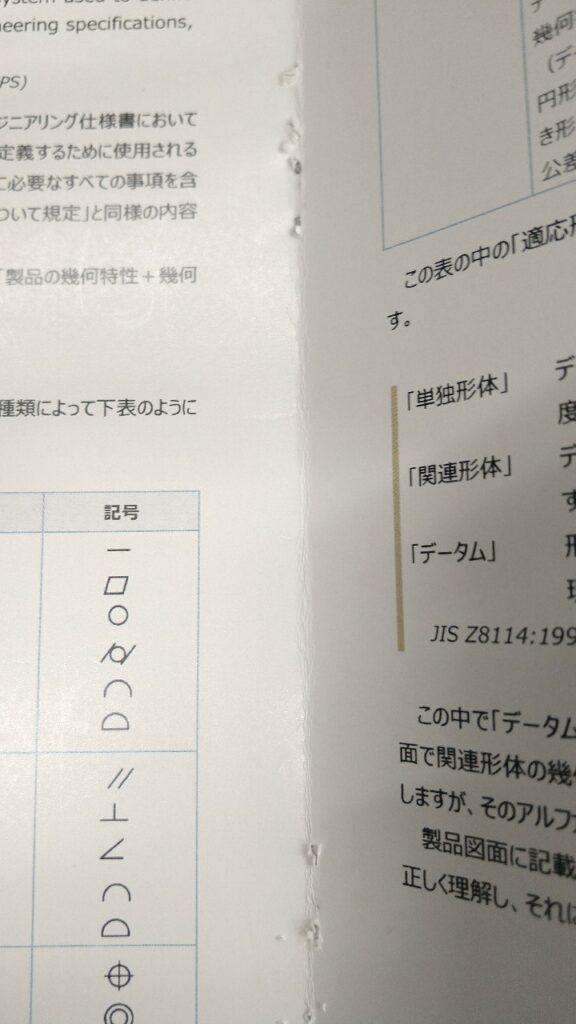 system used to
neering specifications,
PS)
ジニアリング仕様書において
定義するために使用される
に必要なすべての事項を含
ついて規定」と同様の内容
「製品の幾何特性＋幾何
種類によって下表のように
記号
―
▱
○
⌭
⌒
⌓
//
⊥
∠
⌒
⌓
⌖
◎
幾何
(デー
円形
き形
公差
この表の中の「適応形
す。
「単独形体」 デ
度
「関連形体」 デ
す
「データム」 形
JIS Z8114:199
この中で「データム
面で関連形体の幾
しますが、そのアルファ
製品図面に記載
正しく理解し、それに